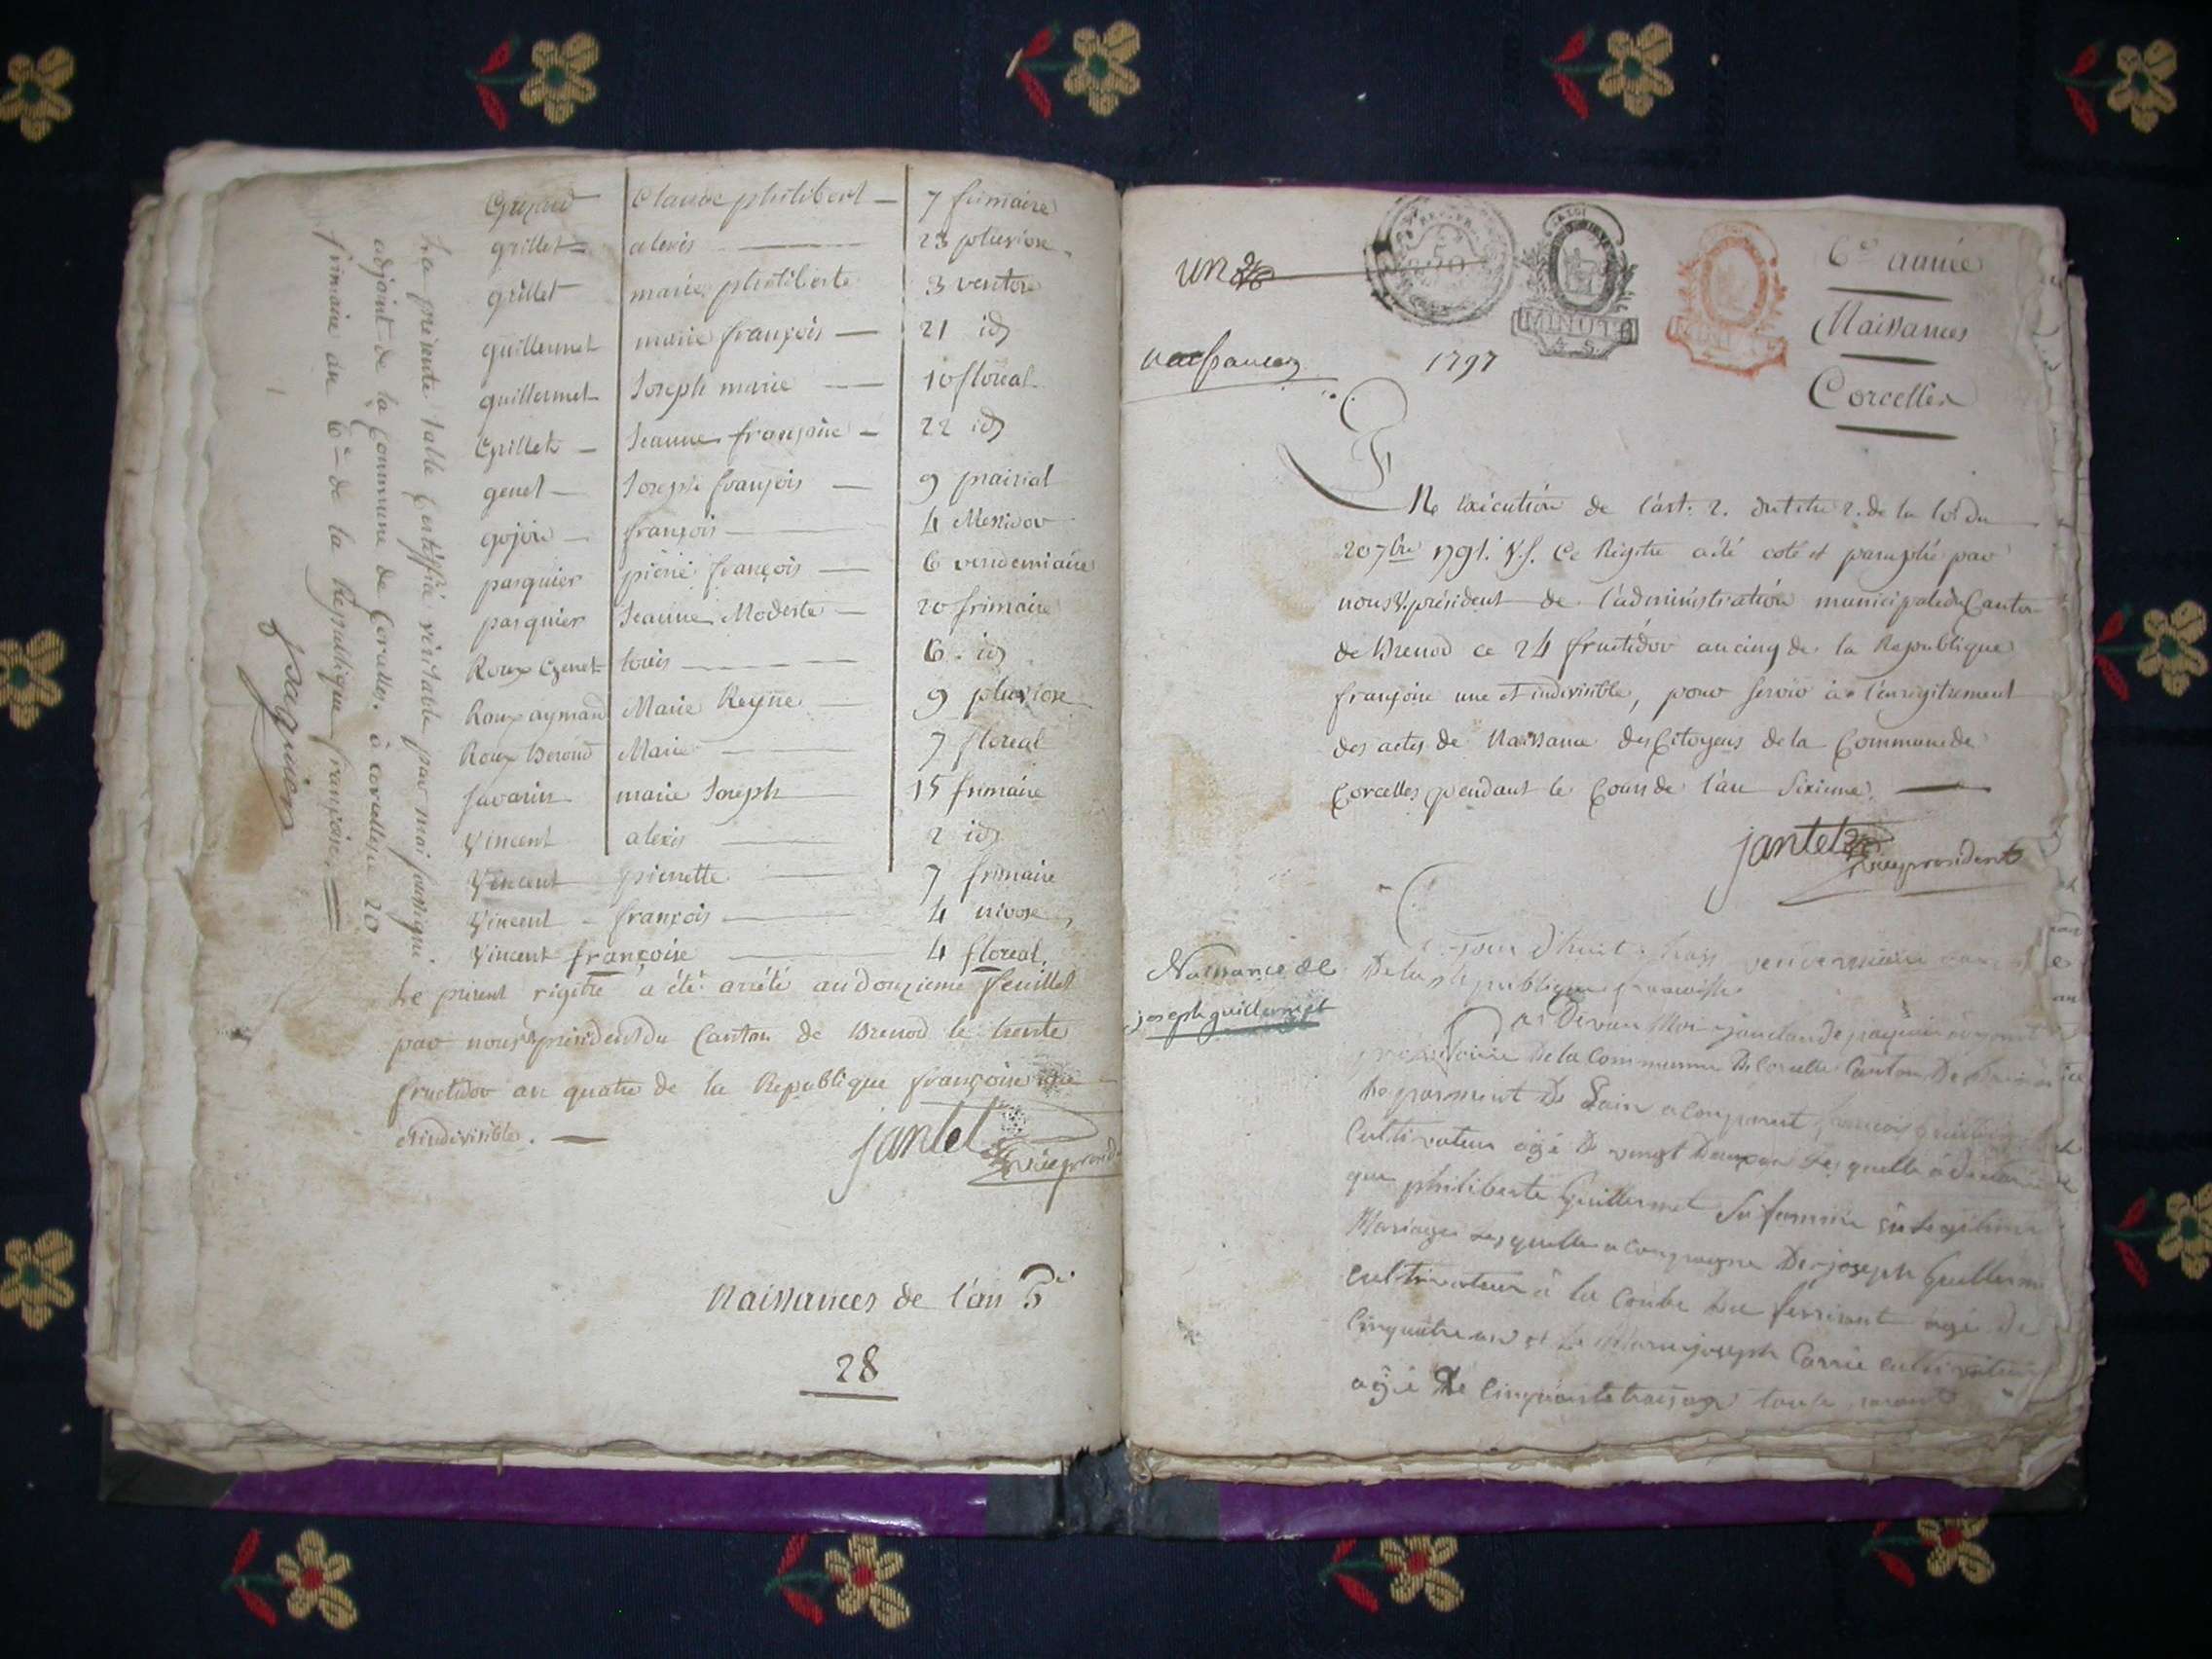 Grillet = alexis — 23 pluviose
grillet marie philiberte 3 ventose
guillermet marie françois — 21 id
guillermet Joseph marie — 10 floréal
Grillet — Jeanne françoise — 22 id
genet — Joseph françois — 9 prairial
gojou — françois — 4 Messidor
pasquier pierre françois — 6 vendemiaire
pasquier Jeanne Modeste — 20 frimaire
Roux Genet louis — 6 . id
Roux aymard Marie Reyne — 9 pluviose
Roux Berond Marie — 7 floreal
Savarin marie Joseph — 15 frimaire
Vincent alexis — 2 id
Vincent pierrette — 7 frimaire
Vincent - françois — 4 nivose
Vincent françoise — 4 floreal.
Le présent régitre a été arrété au douzieme feuillet
par nous président du Canton de Brenod le trente
fructidor an quatre de la Republique françoise une
et indivisible. —
jantet
vicepresid
Naissances de l'an 5e
28
La présente table certiffiée véritable par moi soussigné
adjoint de la Commune de Corcelles. à corcelles ce 20
frimaire an 6e de la Republique françoise.
pasquier
un
MINUTE
4 S.
6e année
Naissances
Corcelles
1797
EN éxécution de l'art. 2. du titre 2. de la loi du
20 7bre 1791. V.S. Ce Régitre a été coté et paraphé par
nous V.président de l'administration municipale du Canton
de Brenod ce 24 fructidor an cinq de la Republique
françoise une et indivisible, pour servir à l'enrégitrement
des actes de Naissance des Citoyens de la Commune de
Corcelles pendant le Cours de l'an Sixieme. —
jantet
vicepresident
Naissance de
joseph guillermet
Jour d'huit vendemiaire
De la republique
par Devan Moi
De la Commune De Corcelle Canton De
De L'ain a Comparut francois
Cultivateur agé De vengt Deux an Lesquelle a
que philiberte Guillermet Sa famme
Mariage Lesquelle acompagne De joseph Guillerme
cultivateur à la Combe agé De
Cinquatre an et De Marie joseph Carrie cultivateur
agé De Cinquante trois ans